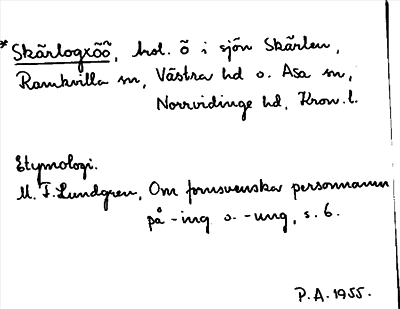 *Skärlogxöö, hol. ö i sjön Skärlen,
Ramkvilla sn, Västra hd o. Asa sn,
Norrvidinge hd, Kron. l.
Etymologi.
M. F. Lundgren, Om fornsvenska personnamn
på -ing o. -ung, s. 6.
P.A. 1955.